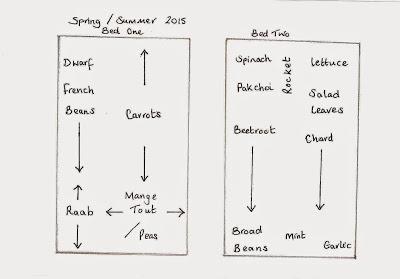 Spring / Summer 2015
Bed One
Dwarf
French
Beans
Carrots
Raab
Mange
Tout
/ Peas
Bed Two
Spinach
Rocket
Lettuce
Pakchoi
Salad
Leaves
Beetroot
Chard
Broad
Beans
Mint
Garlic